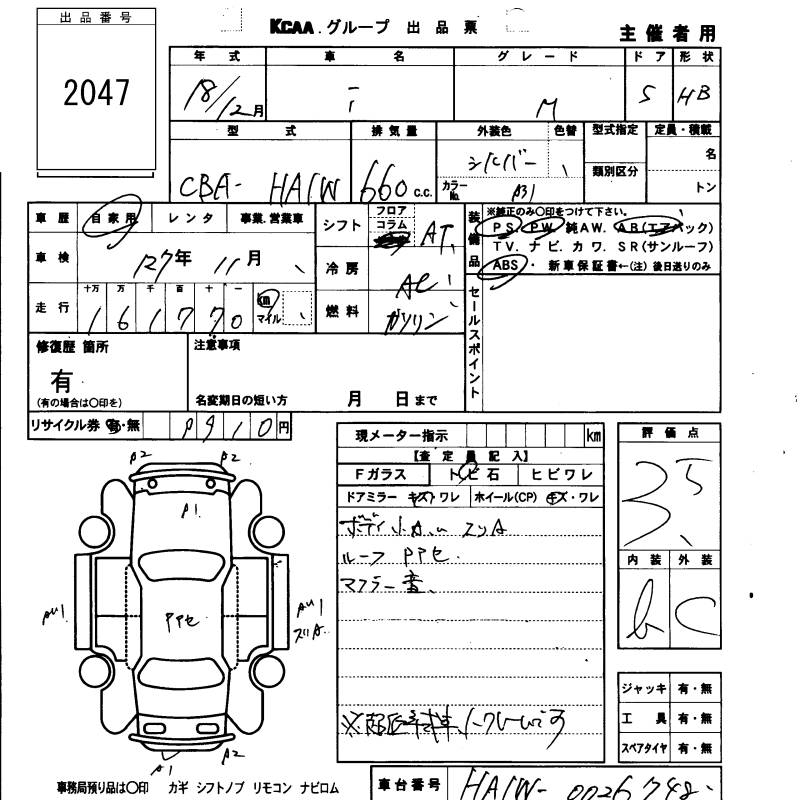 出品番号
2047
KCAA.グループ 出品票
主催者用
年式 車名 グレード ドア 形状
18/12月 i M 5 HB
型式 排気量 外装色 色替 型式指定 定員・積載
CBA- HA1W 660 c.c. シルバー 類別区分 名
カラーNo. A31 トン
車歴 自家用 レンタ 事業.営業車
シフト フロア コラム AT
車検 27年 11月
冷房 AC
走行 十万 万 千 百 十 一
1 6 1 7 7 0 km マイル
燃料 ガソリン
装備品 ※純正のみ○印をつけて下さい。
PS. PW 純AW. AB(エアバック)
TV. ナビ. カワ. SR(サンルーフ)
ABS ・ 新車保証書←(注) 後日送りのみ
セールスポイント
修復歴 箇所 注意事項
有
(有の場合は○印を) 名変期日の短い方 月 日まで
リサイクル券 有・無 8910円
現メーター指示 km
【査定員記入】
Fガラス トビ石 ヒビワレ
ドアミラー キズ・ワレ ホイール(CP) キズ・ワレ
ボディ小A.
ルーフ PPセ.
マフラー音.
評価点
3.5
内装 外装
b C
A2 A2
A1
PPセ
AU1.
AU1
スリA.
A1 A2
ジャッキ 有・無
工具 有・無
スペアタイヤ 有・無
事務局預り品は○印 カギ シフトノブ リモコン ナビロム
車台番号 HA1W- 0026748